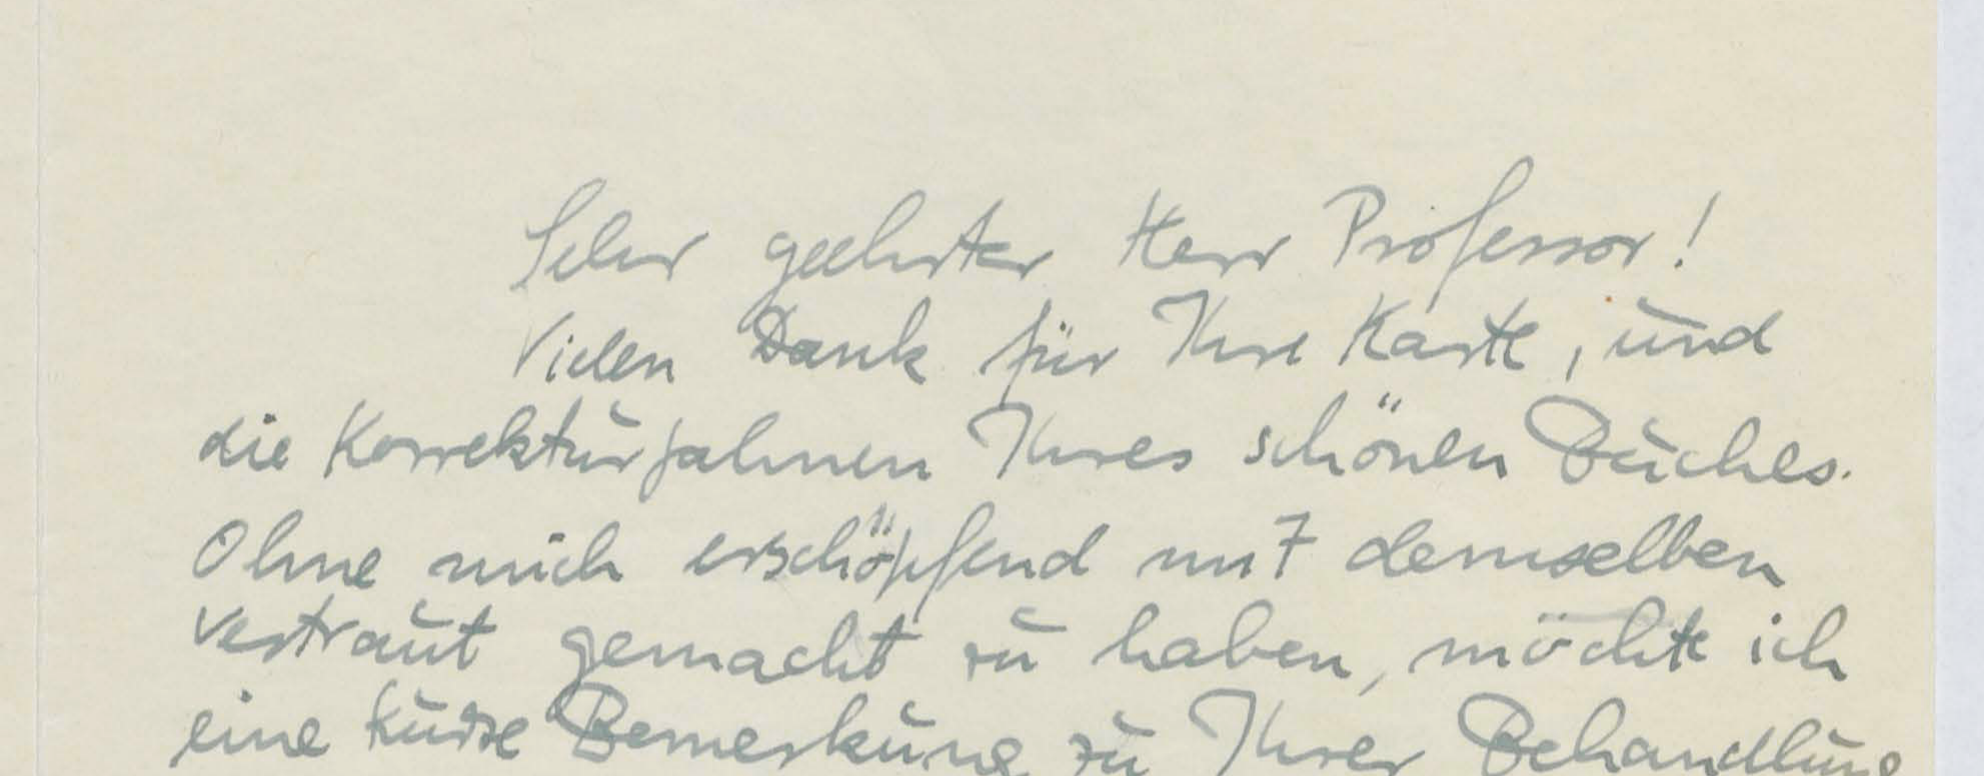 Sehr geehrter Herr Professor!
Vielen Dank für Ihre Karte, und
die Korrekturfahnen Ihres schönen Buches.
Ohne mich erschöpfend mit demselben
vertraut gemacht zu haben, möchte ich
eine kurze Bemerkung zu Ihrer Behandlung